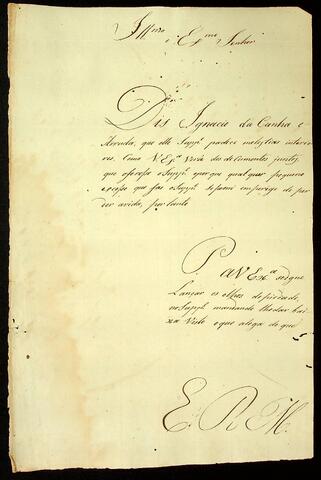 Illmo
e Exmo Senhor
Dis Ignacio da Cunha e
Arruda, que elle Suppe padece molestias interio
res, como V Exa Verá dos documentos juntos
que oferese o Suppe, por que qual quer pequeno
exceso que fas o Suppe se poem em perigo de per
der avida, por tanto
P. a V Exca se digne
Lançar os olhos de piedade
no Suppe mandando lhe dar bai
xa Visto o que alega de que
E. R. M.